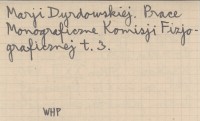 Marji Dyrdowskiej. Prace
Monograficzne Komisji Fizjo-
graficznej t. 3.
WHP